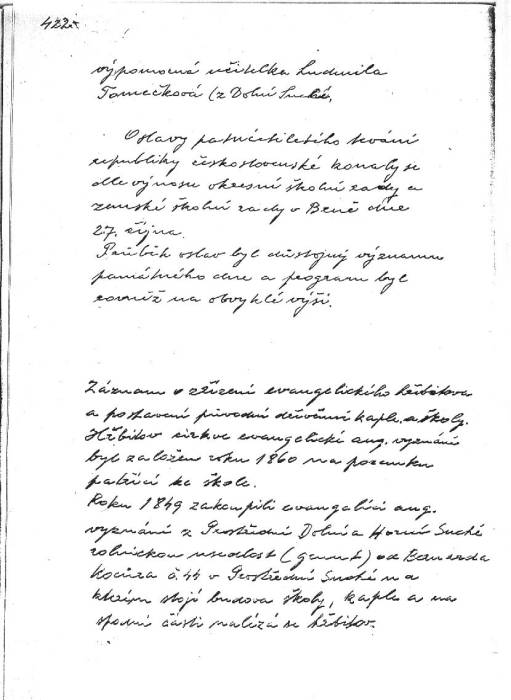 422.
výpomocná učitelka Ludmila
Tomečková (z Dolní Suché.
Oslavy patnáctiletého trvání
republiky československé konaly se
dle výnosu okresní školní rady a
zemské školní rady v Brně dne
27. října.
Průběh oslav byl důstojný významu
památného dne a program byl
rovněž na obvyklé výši.
Záznam o zřízení evangelického hřbitova
a postavení původní dřevěné kaple a školy.
Hřbitov církve evangelické aug. vyznání
byl založen roku 1860 na pozemku
patřící ke škole.
Roku 1849 zakoupili evangelíci aug.
vyznání z Prostřední Dolní a Horní Suché
rolnickou usedlost (grunt) od
Kocůra č. 44 v Prostřední Suché na
kterém stojí budova školy, kaple a na
spodní části nalézá se hřbitov.